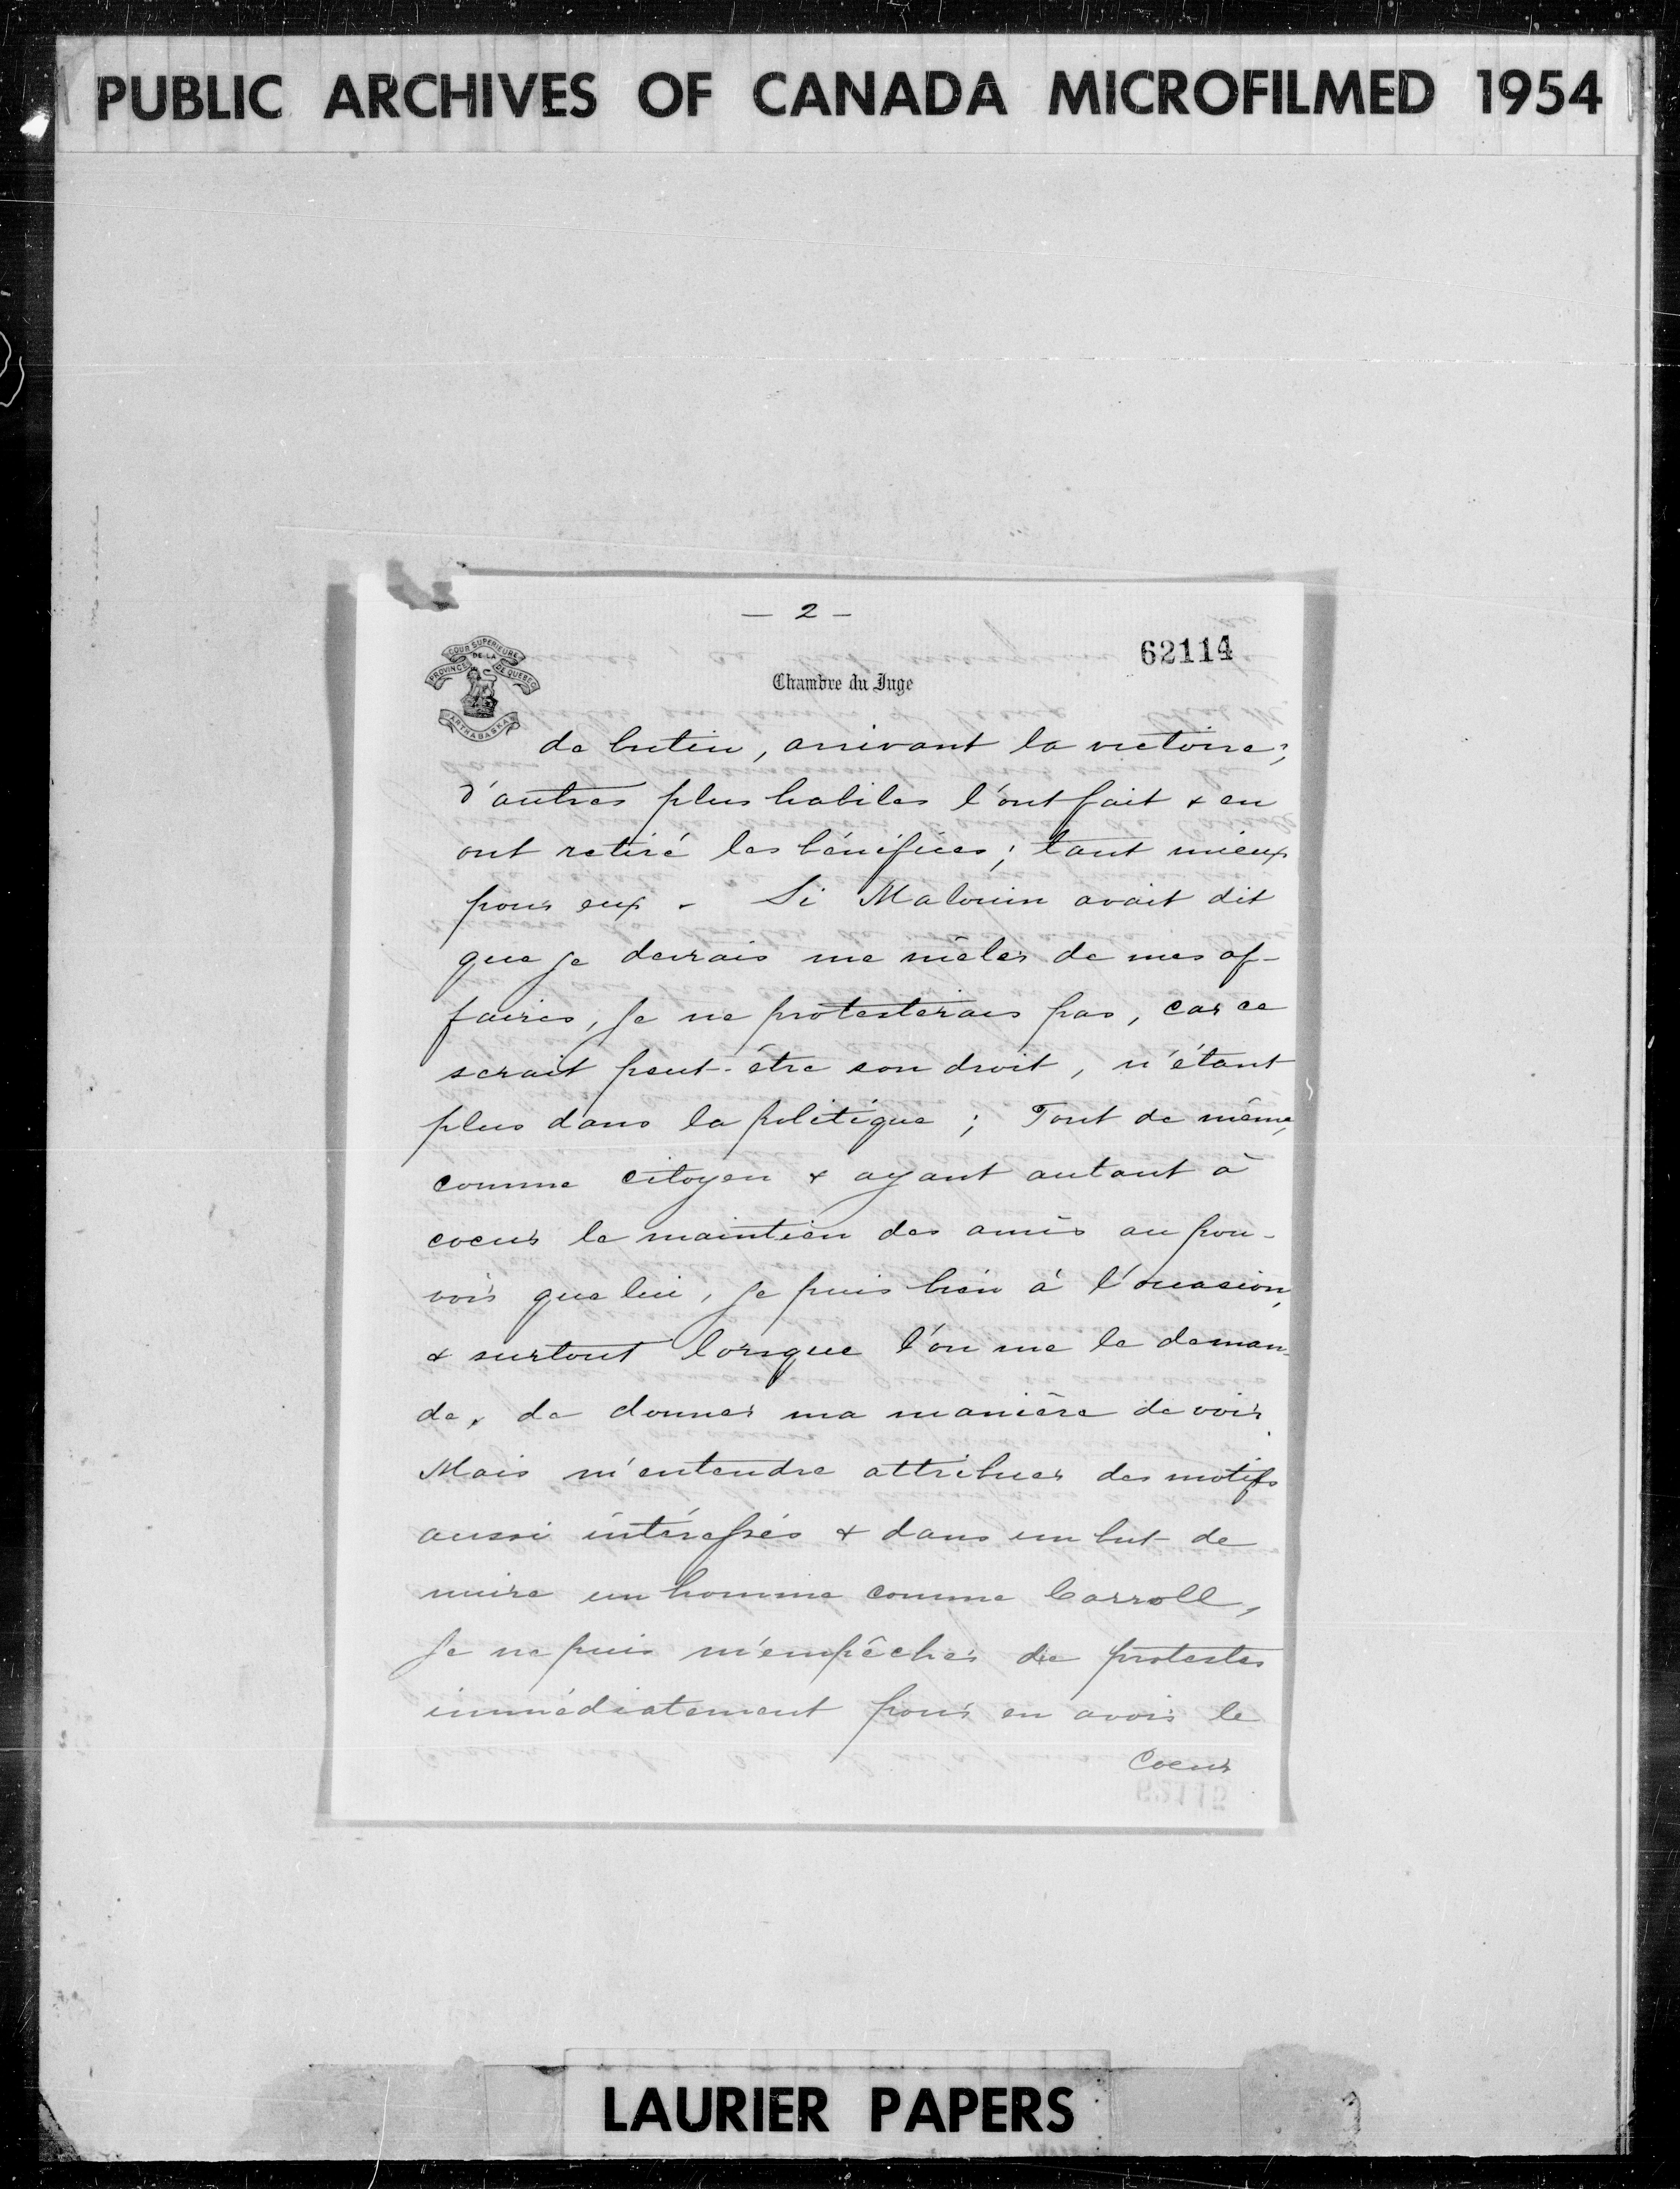 PUBLIC ARCHIVES OF CANADA MICROFILMED 1954
— 2 —
62114
COUR SUPERIEURE
DE LA
PROVINCE DE QUEBEC
ARTHABASKA
Chambre du Juge
de butin, arrivant la victoire;
d'autres plus habiles l'ont fait & en
ont retiré les bénéfices; tant mieux
pour eux - Si Malouin avait dit
que je devrais me mêler de mes af-
faires, je ne protesterais pas, car ce
serait peut-être son droit, n'étant
plus dans la politique; Tout de même,
comme citoyen & ayant autant à
coeur le maintien des amis au pou-
voir que lui, je puis bien à l'occasion,
& surtout lorsque l'on me le deman-
de, de donner ma manière de voir.
Mais m'entendre attribuer des motifs
aussi intéressés & dans un but de
nuire un homme comme Carroll,
je ne puis m'empêcher de protester
immédiatement pour en avoir le
Coeur
62115
LAURIER PAPERS